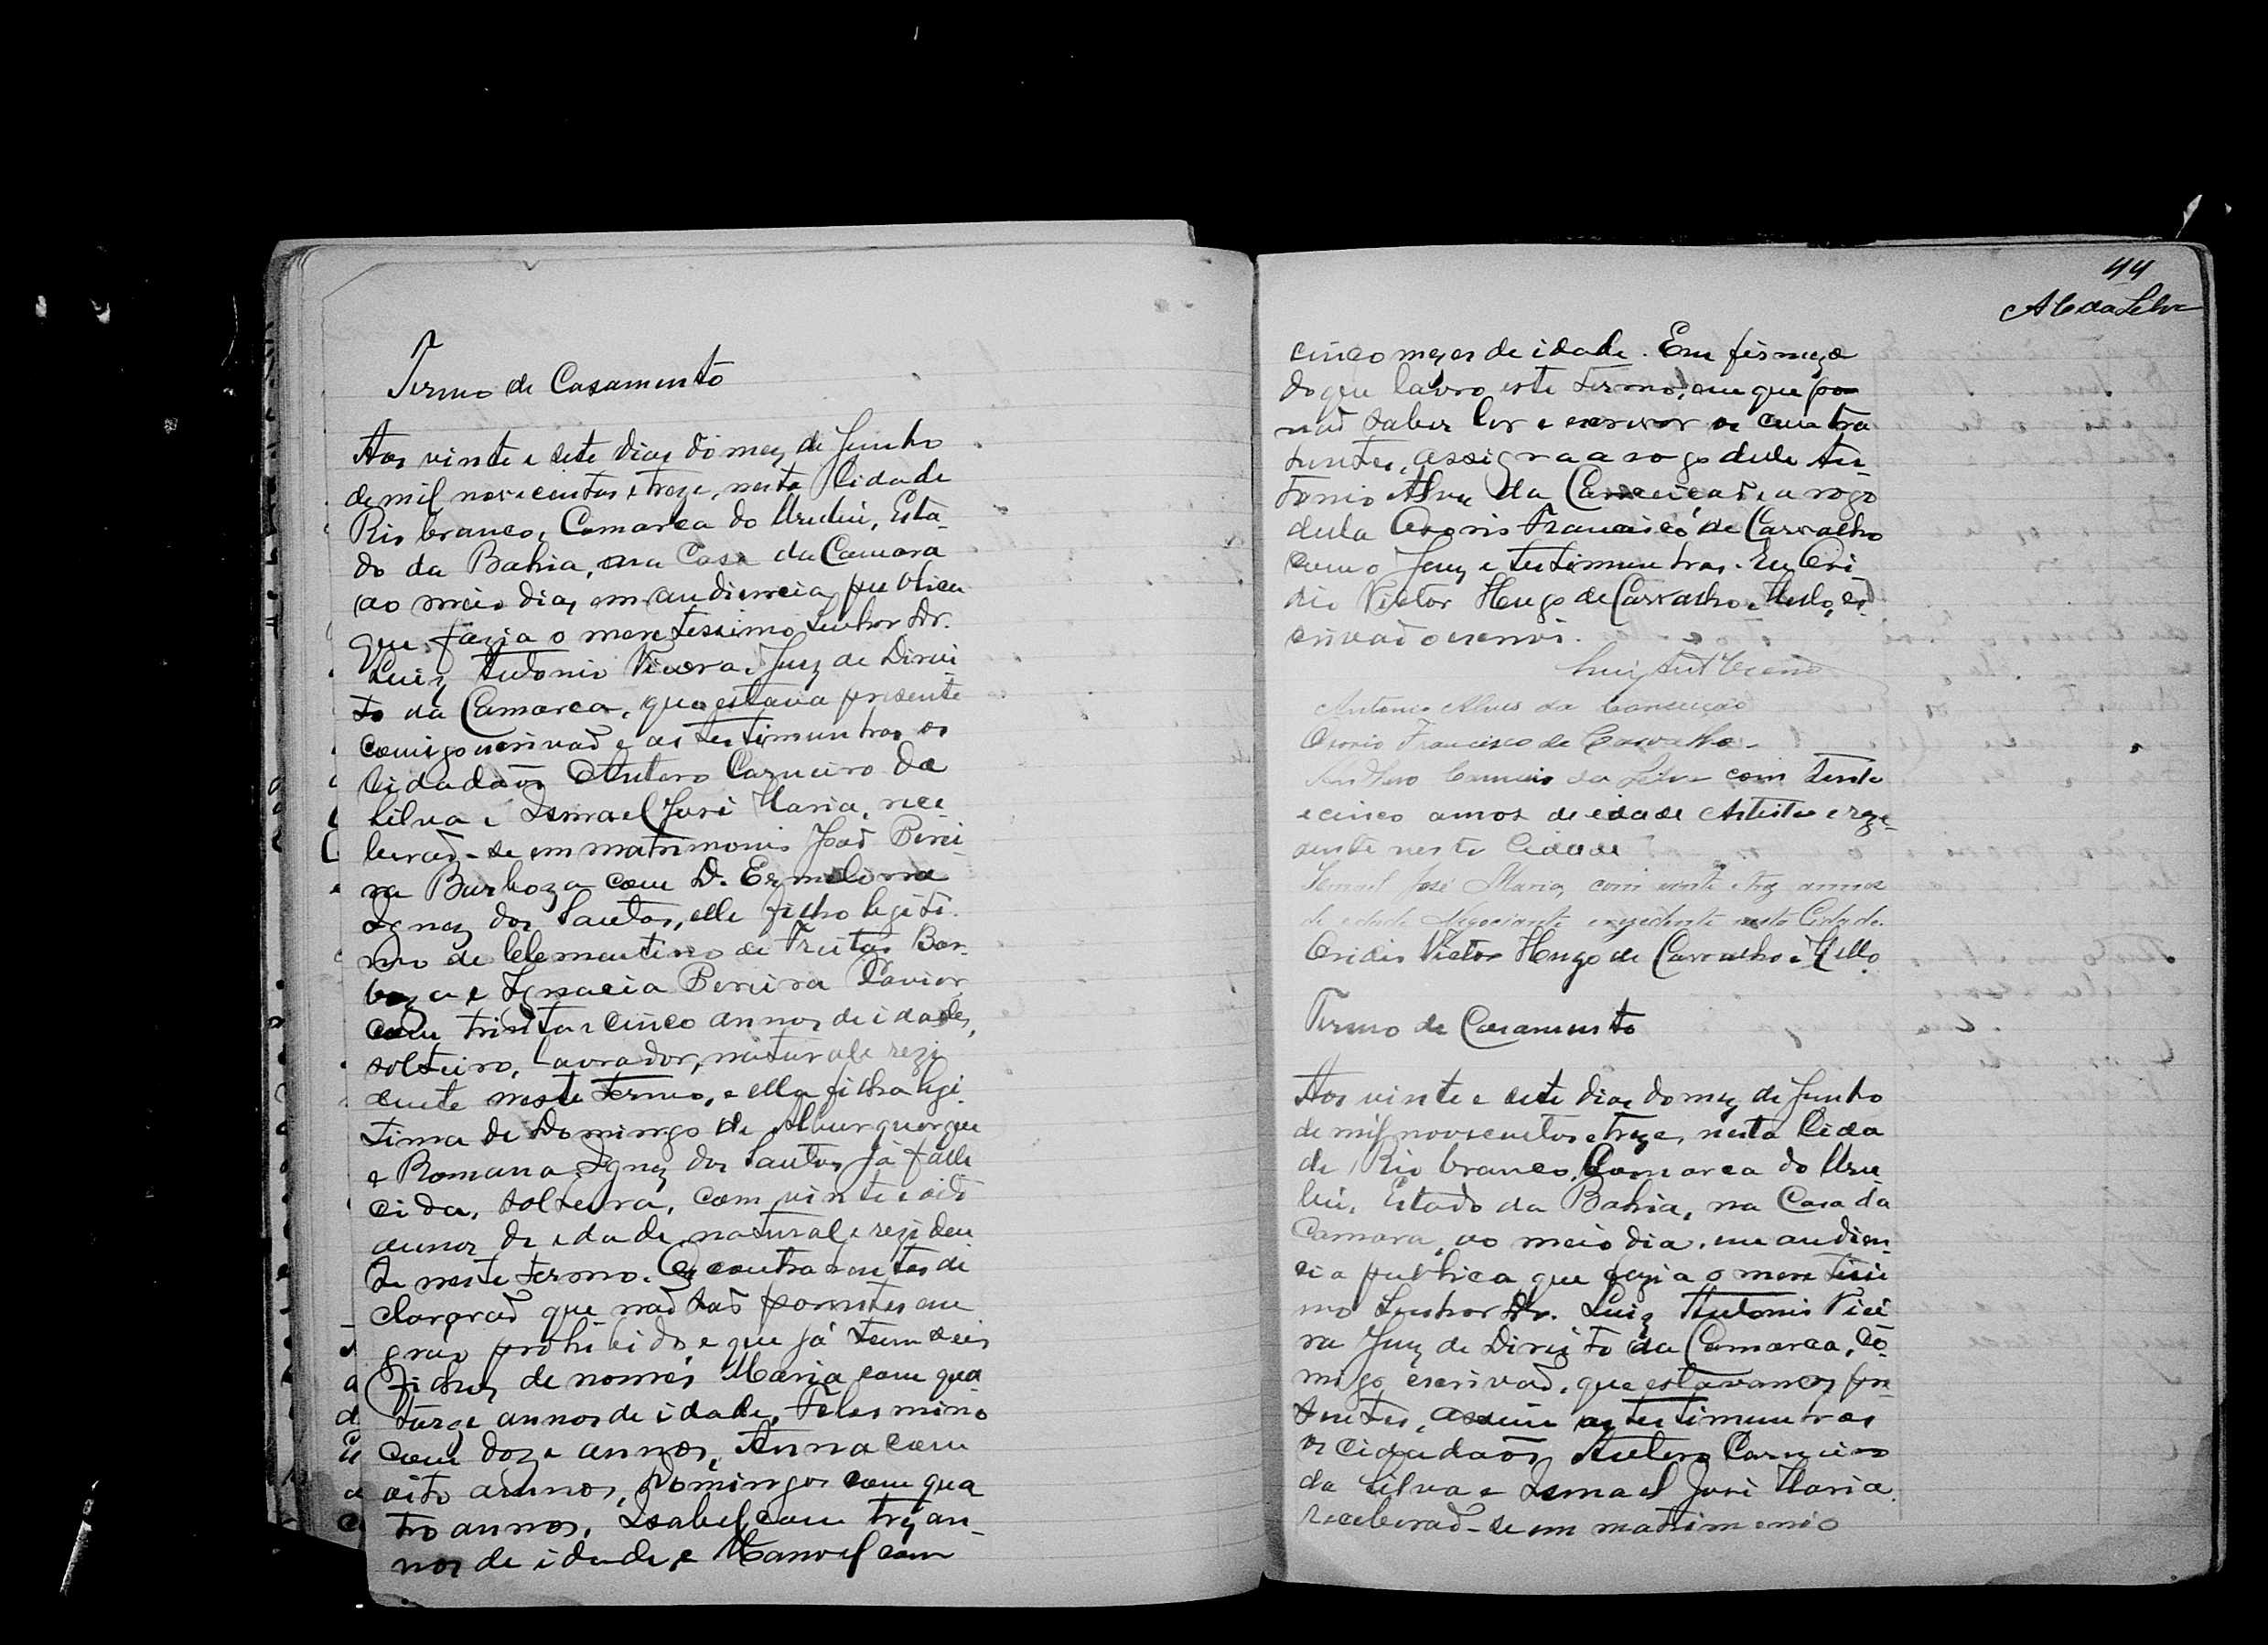 Termo de Casamento
Aos vinte e sete dias do mez de Junho
de mil novecentos e treze, nesta Cidade
Rio branco, Comarca do Urubú, Esta-
do da Bahia, na Casa da Camara
ao meio dia, em audiencia publica
que fazia o meretissimo Senhor Dr.
Luiz Antonio Vieira Juiz de Direi-
to da Comarca, que estava presente
comigo escrivaõ e as testimunhas os
Cidadaõs Antero Carneiro da
Silva e Ismael José Maria, rece-
beraõ-se em matrimonio Joaõ Perei-
ra Barboza com D. Ermelina
Ignez dos Santos, elle filho legiti-
mo de Clementino de Freitas Bar-
boza e Ignacia Pereira
com trinta e cinco annos de idade,
solteiro, lavrador, natural e rezi
dente neste termo, e ella filha legi-
tima de Domingo de Alburquerque
e Romana Ignez dos Santos já falle
cida, solteira, com vinte e oito
annos de edade, natural e reziden
te neste termo. Os contraentes de
claroraõ que naõ saõ parentes em
grao prohibido, e que já tem seis
filhos de nomes Maria com qua-
torze annos de idade, Felesmino
com doze annos, Anna com
oito annos, Domingos com qua
tro annos, Isabel com trez an-
nos de idade, e Manoel com
44
A C da Silva
cinco mezes de idade. Em firmeza
do que lavro este termo, em que por
naõ saber ler e escrever os contra
entes, assigna a rogo delle An-
tonio Alves da Conceiçaõ, e a rogo
della Osorio Francisco de Carvalho
com o Juiz e testimunhas. Eu Ovi
dio Victor Hugo de Carvalho e Mello, es-
crivaõ o escrevi.
Luiz Antº Vieira
Antonio Alves da Conceição
Osorio Francisco de Carvalho
Anthero Carneiro da Silva com trinta
e cinco annos de edade Artista e rezi-
dente nesta Cidade
Ismael José Maria, com vinte e trez annos
de edade Negociante e rezidente nesta Cidade.
Ovidio Victor Hugo de Carvalho e Mello
Termo de Casamento
Aos vinte e sete dias do mez de Junho
de mil novecentos e treze, nesta Cida
de Rio branco, Comarca do Uru-
bú, Estado da Bahia, na Casa da
Camara, ao meio dia, em audien-
cia publica que fazia o meretissi
mo Senhor Dr. Luiz Antonio Viei
ra Juiz de Direito da Comarca, co-
migo escrivaõ, que estavamos pre-
sentes, assim as testimunhas
os Cidadaõs Antero Carneiro
da Silva e Ismael José Maria,
receberaõ-se em matrimonio